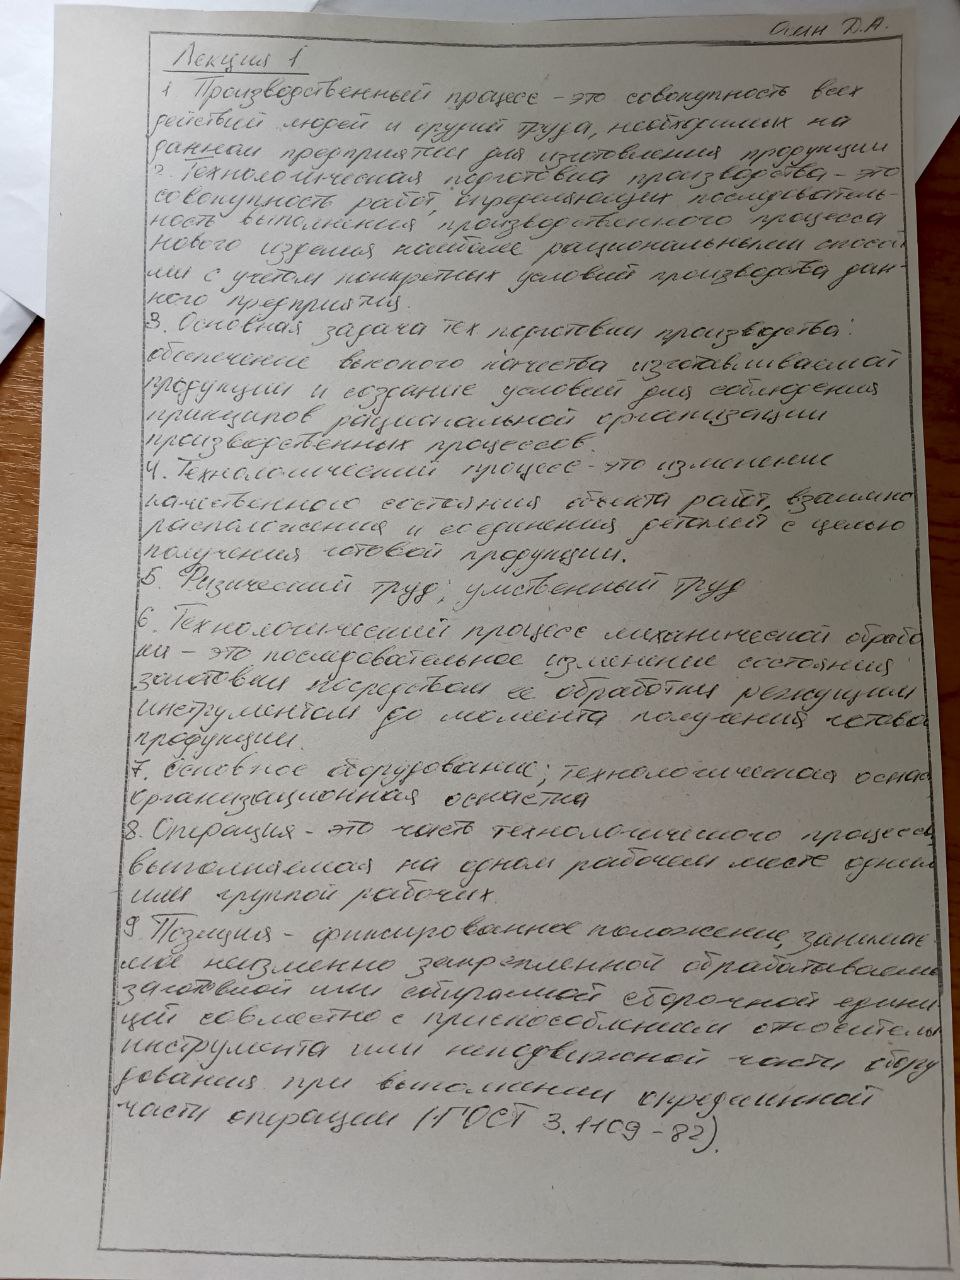 Аин Д.А.
Лекция 1
1 Производственный процесс - это совокупность всех
действий людей и орудий труда, необходимых на
данном предприятии для изготовления продукции
2. Технологическая подготовка производства - это
совокупность работ, определяющих последователь-
ность выполнения производственного процесса
нового изделия наиболее рациональными способа
ми с учетом конкретных условий производства дан-
ного предприятия.
3. Основная задача тех подготовки производства:
обеспечение высокого качества изготавливаемой
продукции и создание условий для соблюдения
принципов рациональной организации
производственных процессов.
4. Технологический процесс - это изменение
качественного состояния объекта работ, взаимно
расположения и соединения деталей с целью
получения готовой продукции.
5. Физический труд; умственный труд
6. Технологический процесс механической обрабо
ки - это последовательное изменение состояния
заготовки посредством ее обработки режущим
инструментом до момента получения готовой
продукции.
7. Основное оборудование; технологическая оснас
организационная оснастка
8. Операция - это часть технологического процесса,
выполняемая на одном рабочем месте одним
или группой рабочих.
9. Позиция - фиксированное положение, занимае-
мое неизменно закрепленной обрабатываемой
заготовкой или собираемой сборочной едини
цей совместно с приспособлением относительно
инструмента или неподвижной части обору
дования при выполнении определенной
части операции (ГОСТ 3.1109-82).